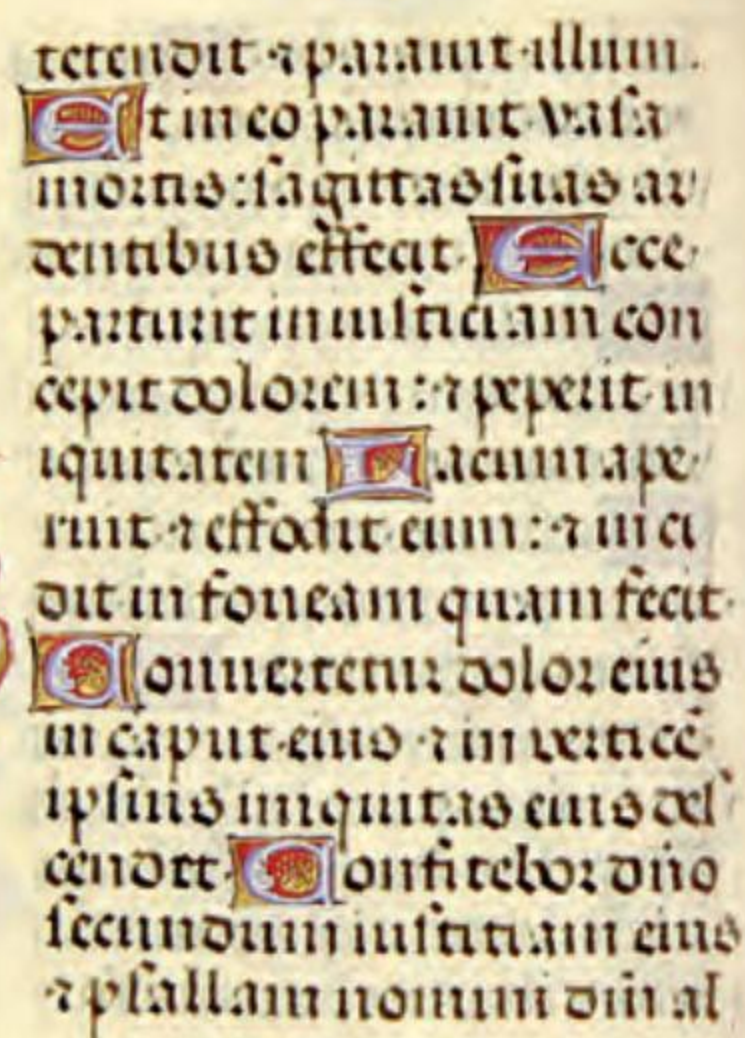 tetendit ⁊ parauit illum.
Et in eo parauit vasa
mortis: sagittas suas ar/
dentibus effecit. Ecce
parturit iniusticiam con
cepit dolorem: ⁊ peperit in
iquitatem Lacum ape/
ruit ⁊ effodit eum: ⁊ inci
dit in foueam quam fecit.
Conuertetur dolor eius
in caput eius ⁊ in verticē
ipsius iniquitas eius des
cendet. Confitebor dño
secundum iustitiam eius
⁊ psallam nomini dñi al